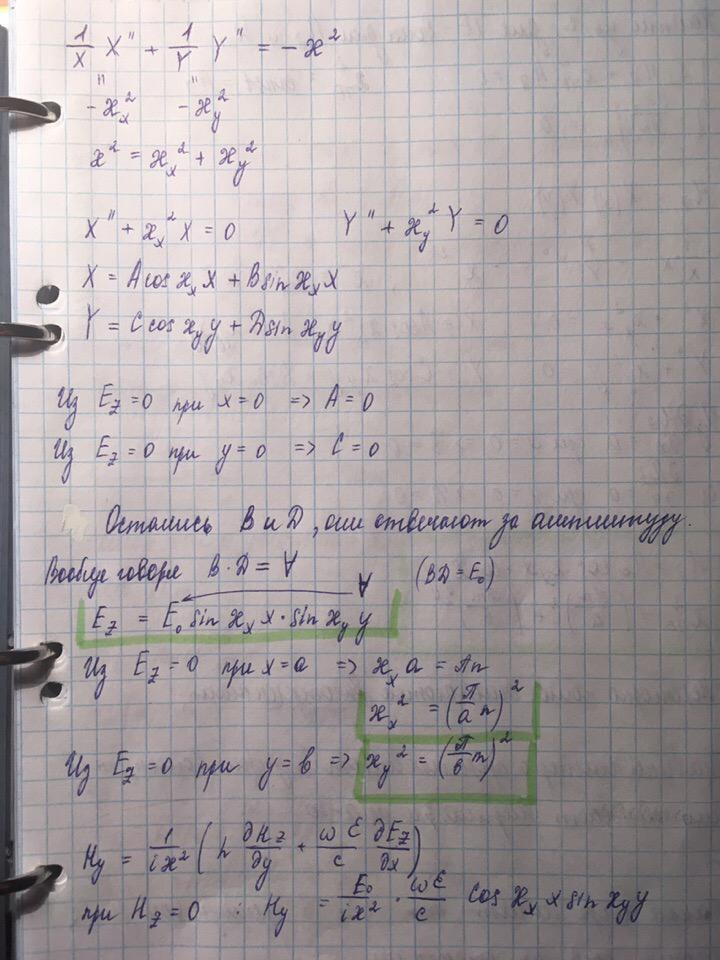 1/X X'' + 1/Y Y'' = − ϰ²
'' ''
−ϰₓ² −ϰ_y²
ϰ² = ϰₓ² + ϰ_y²
X'' + ϰₓ² X = 0 Y'' + ϰ_y² Y = 0
X = A cos ϰₓ x + B sin ϰₓ x
Y = C cos ϰ_y y + D sin ϰ_y y
Из E_z = 0 при x = 0 => A = 0
Из E_z = 0 при y = 0 => C = 0
Остались B и D, они отвечают за амплитуду.
Вообще говоря B · D = ∀ ∀ (BD = E₀)
E_z = E₀ sin ϰₓ x · sin ϰ_y y
Из E_z = 0 при x = a => ϰₓ a = πn
ϰₓ² = (π/a n)²
Из E_z = 0 при y = b => ϰ_y² = (π/b m)²
H_y = 1/(iϰ²) (h ∂H_z/∂y + ωε/c ∂E_z/∂x)
при H_z = 0 : H_y = E₀/(iϰ²) · ωε/c cos ϰₓ x sin ϰ_y y